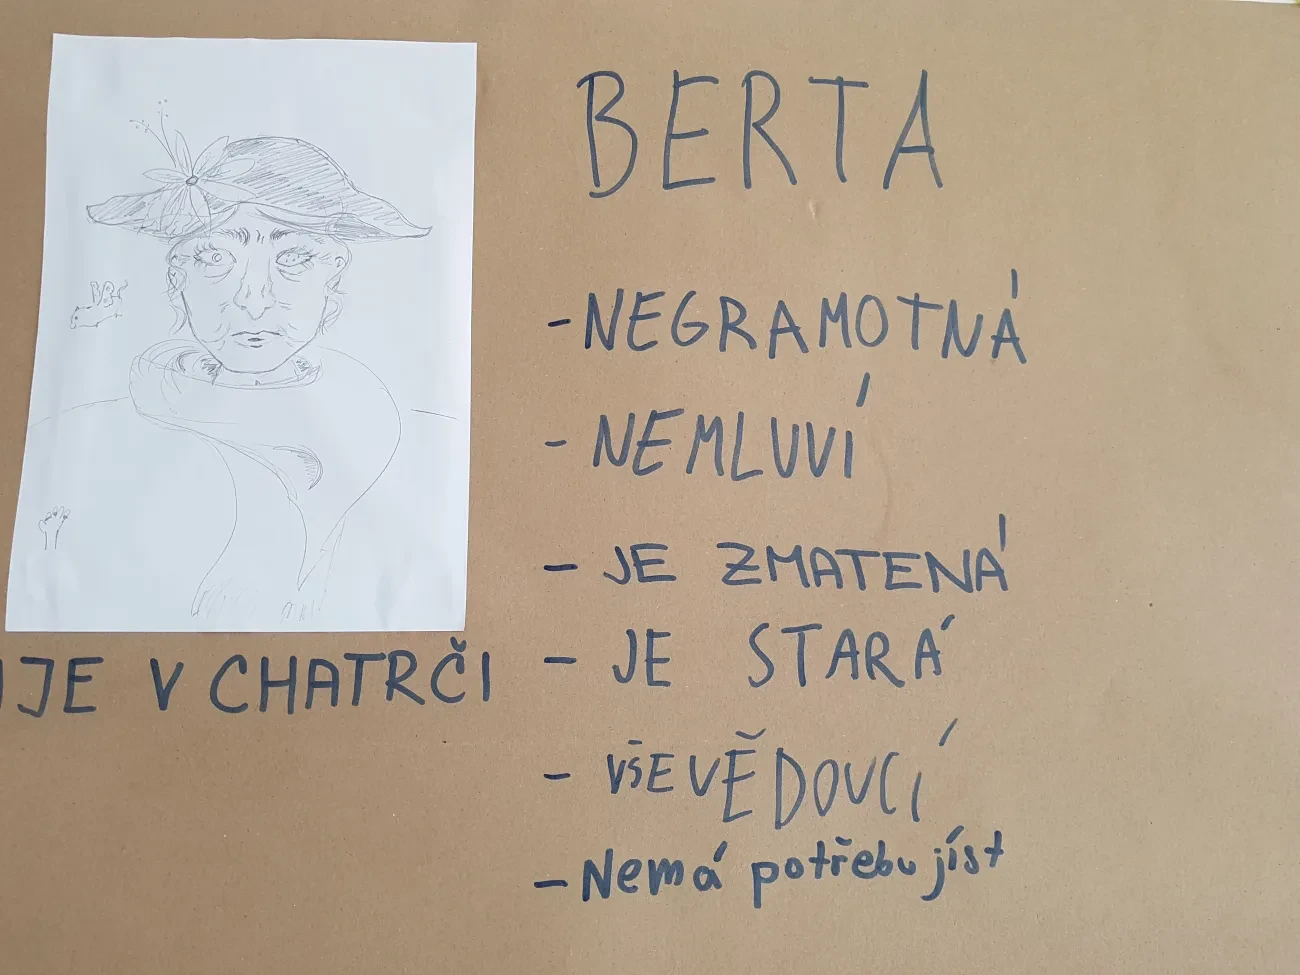 BERTA
-NEGRAMOTNÁ
- NEMLUVÍ
- JE ZMATENÁ
- JE STARÁ
- VŠEVĚDOUCÍ
- Nemá potřebu jíst
JE V CHATRČI